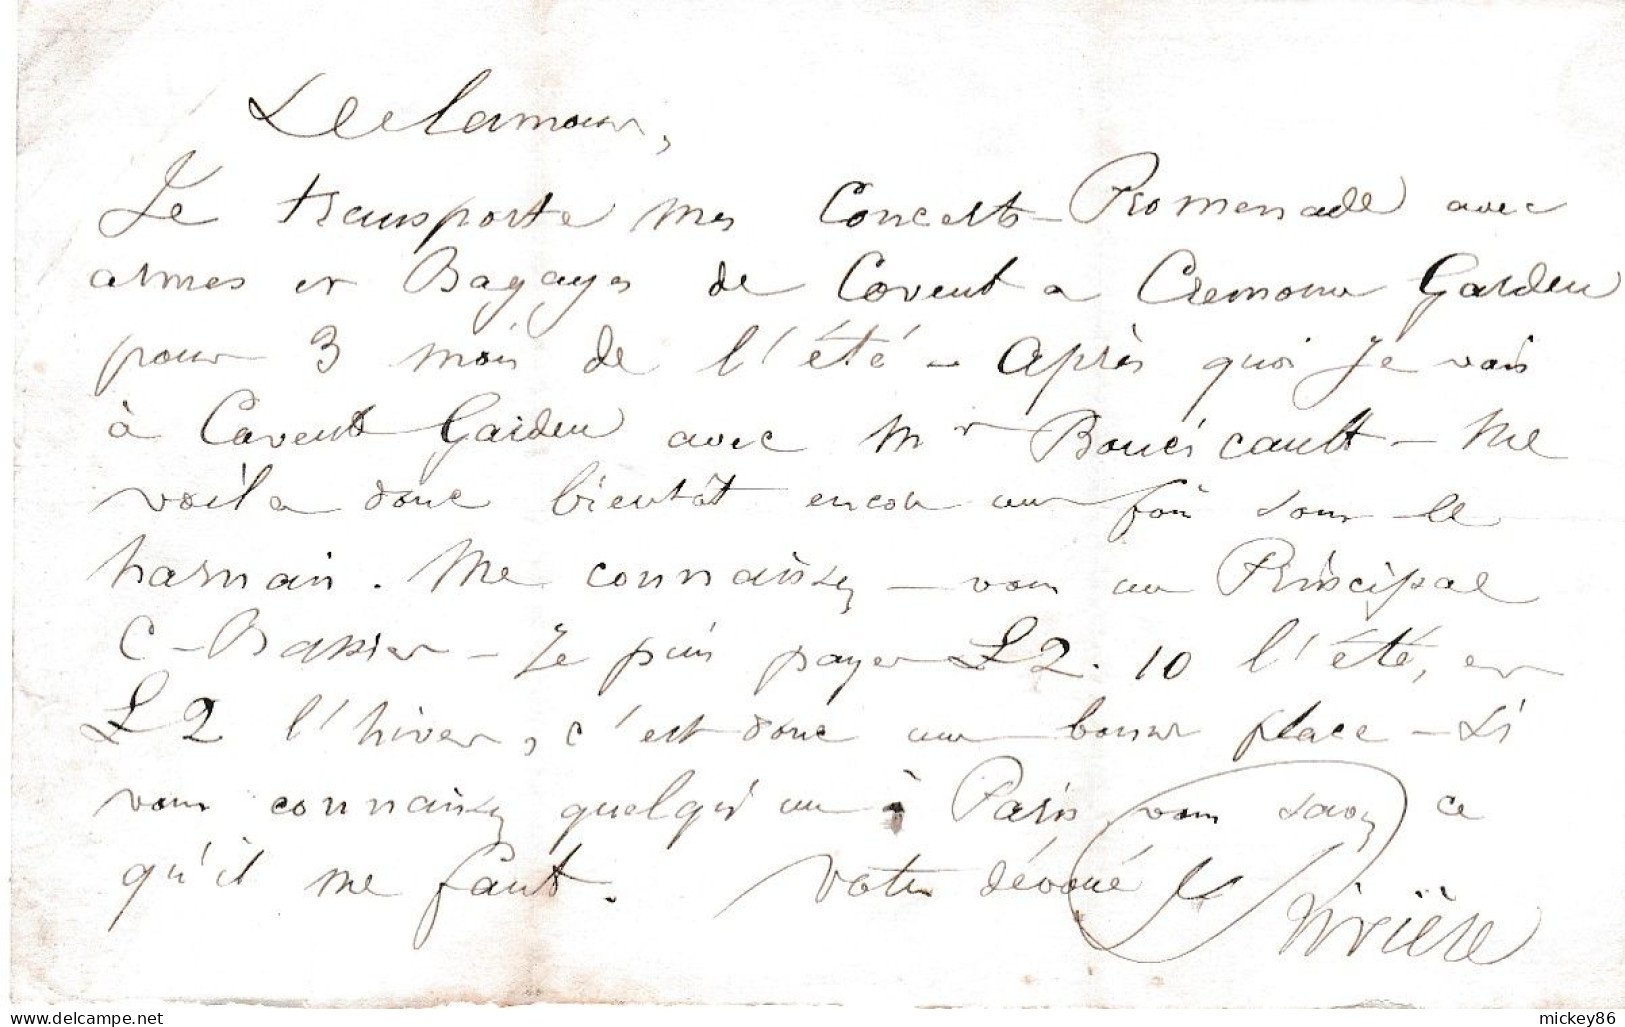 Leclamour,
Je transporte mes Concerts-Promenade avec
armes et Bagages de Covent a Cremorne Garden
pour 3 mois de l'été - Après quoi Je vais
à Covent Garden avec Mr Boucicault - Me
voila donc bientôt encore une fois sous le
harnais. Me connaissez-vous un Principal
C-Bassier - Je puis payer £2.10 l'été, et
£2 l'hiver, c'est donc une bonne place - Si
vous connaissez quelqu'un à Paris vous savez ce
qu'il me faut. Votre dévoué Rivière
www.delcampe.net
mickey86